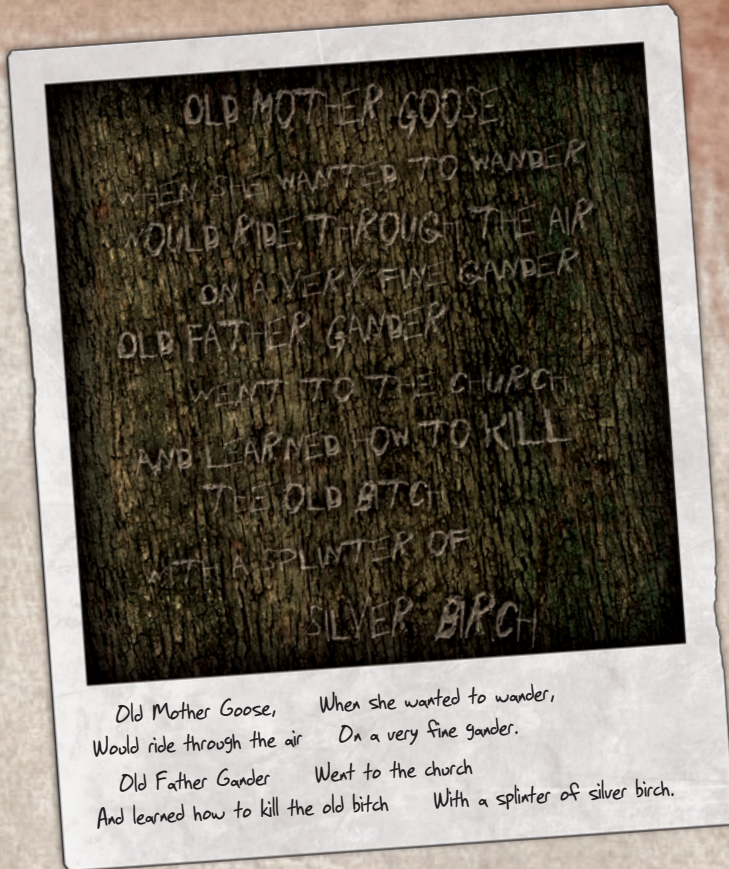 OLD MOTHER GOOSE
WHEN SHE WANTED TO WANDER
WOULD RIDE THROUGH THE AIR
ON A VERY FINE GANDER
OLD FATHER GANDER
WENT TO THE CHURCH
AND LEARNED HOW TO KILL
THE OLD BITCH
WITH A SPLINTER OF
SILVER BIRCH
Old Mother Goose, When she wanted to wander,
Would ride through the air On a very fine gander.
Old Father Gander Went to the church
And learned how to kill the old bitch With a splinter of silver birch.